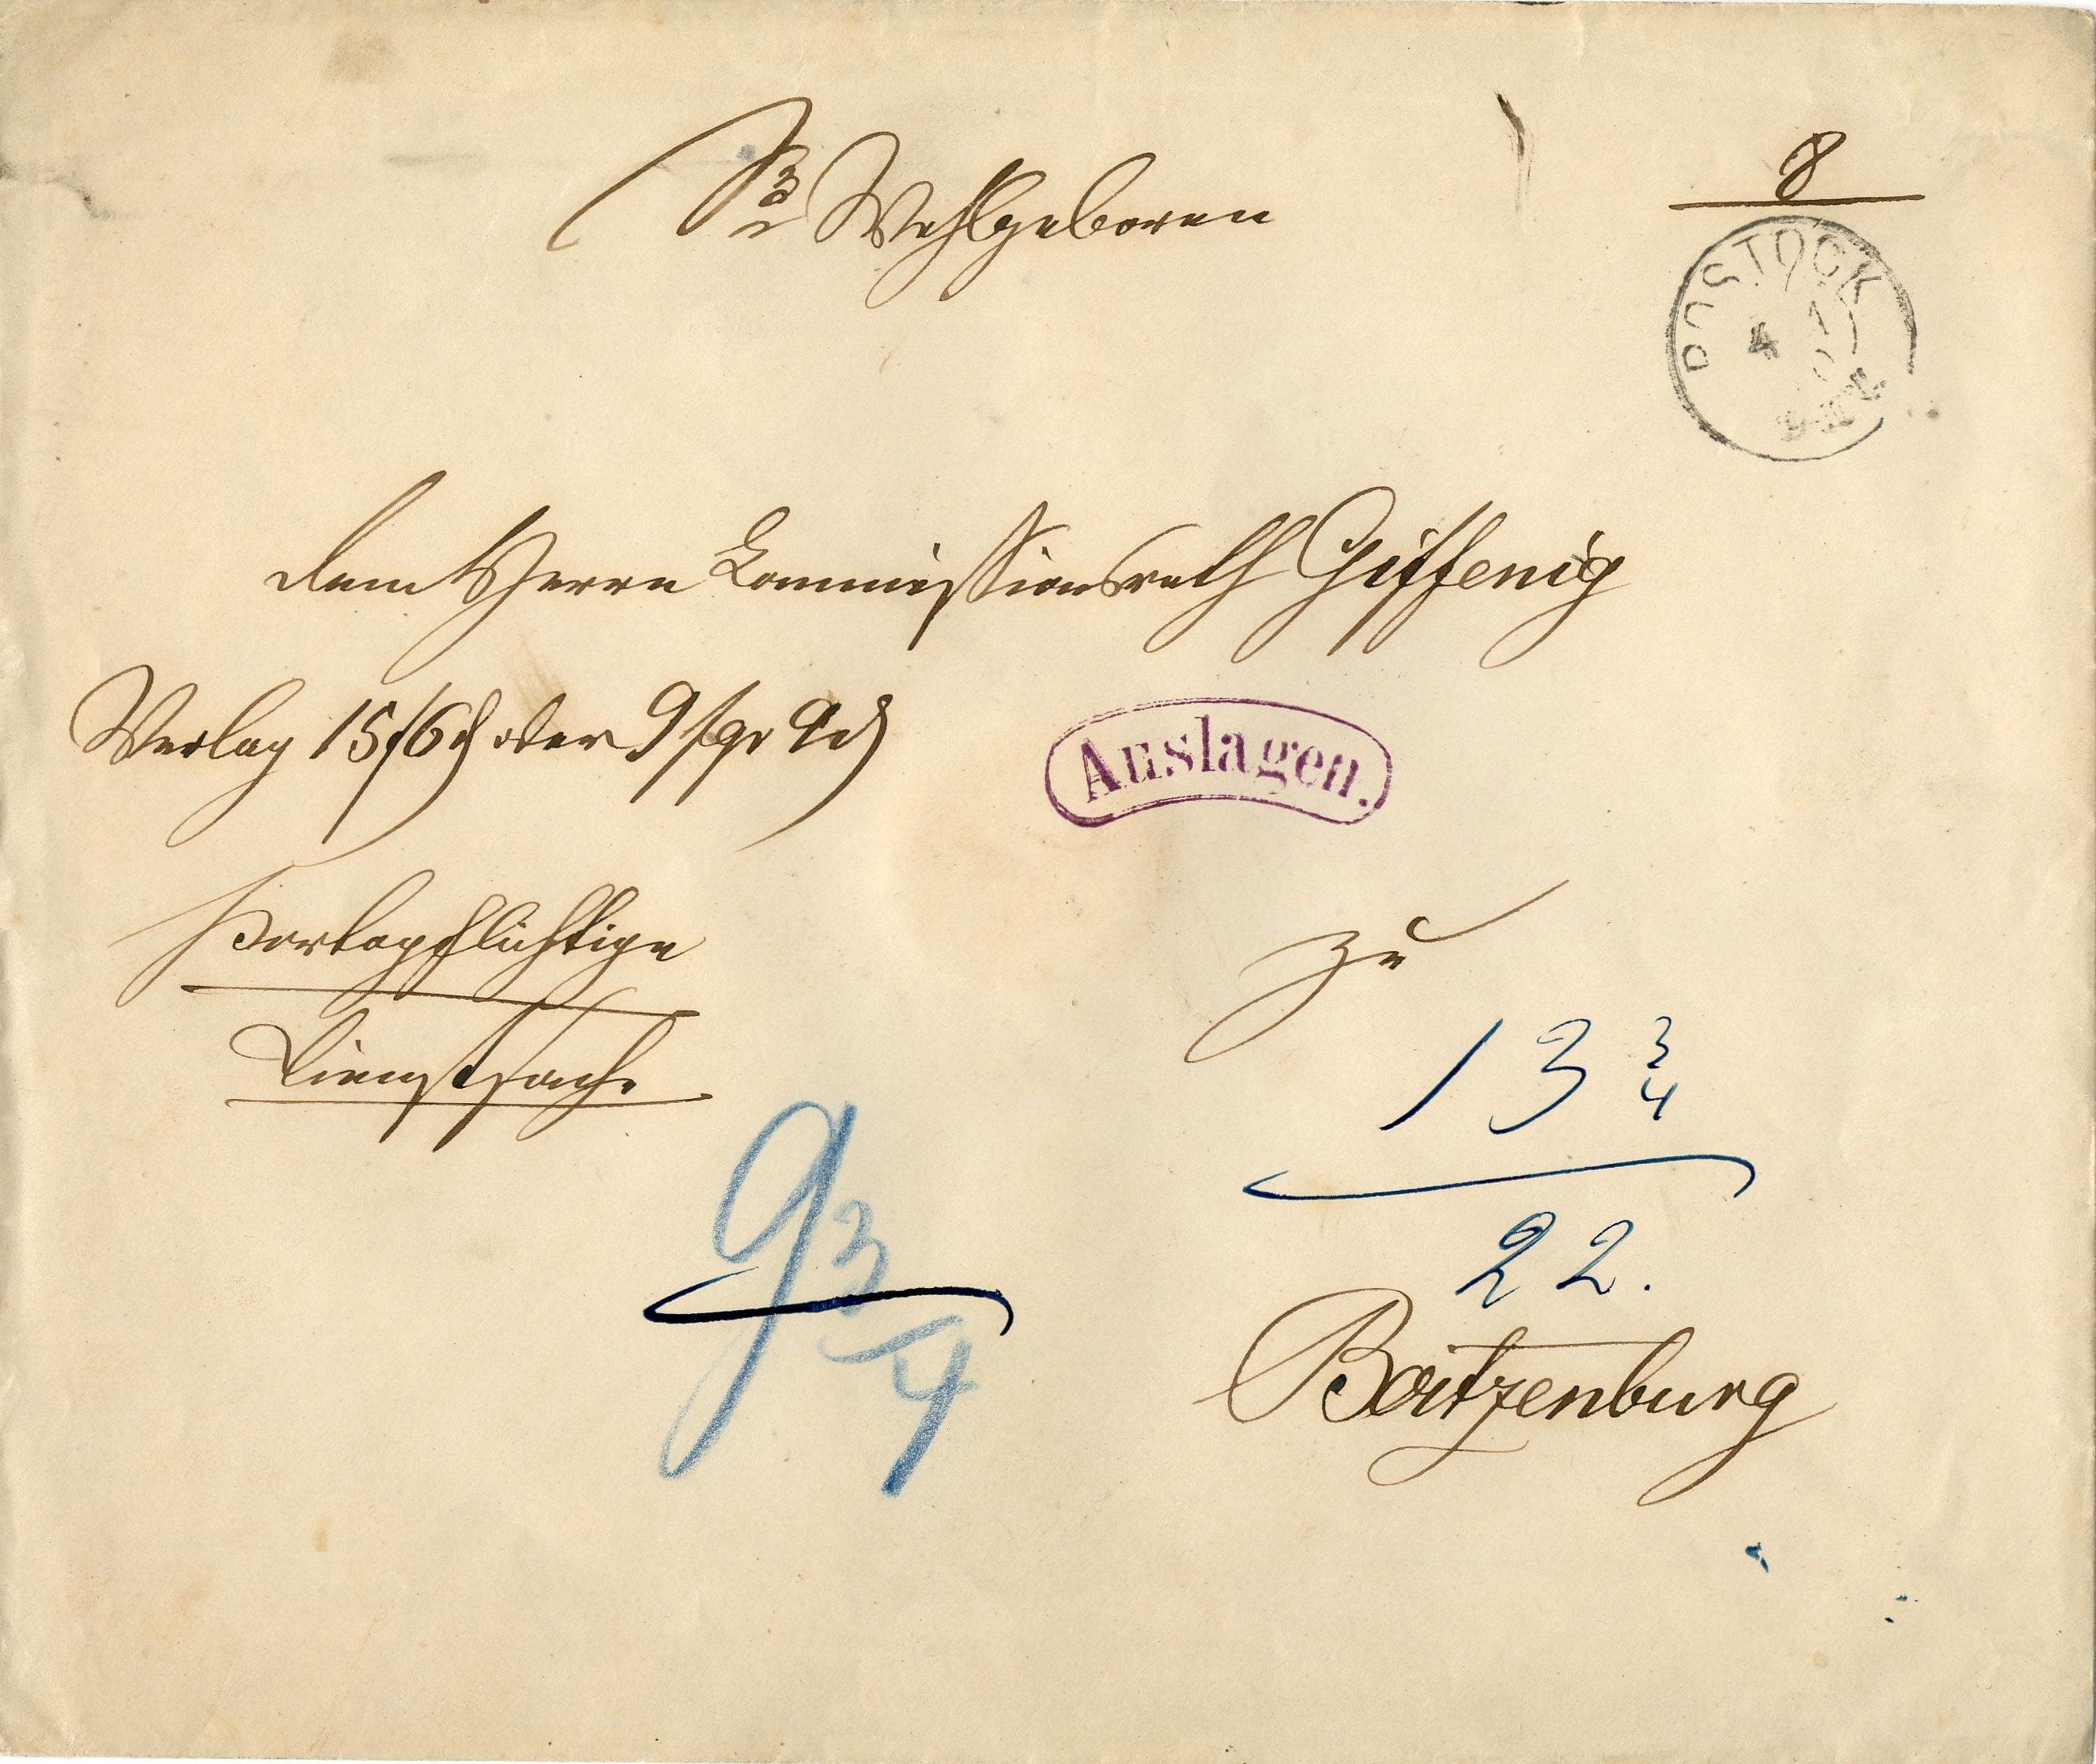 Sr Wohlgeboren
8
ROSTOCK
4 1
dem Herrn Commissionsrath Giffenig
Verlag 15 ß 6 ₰ oder 9 sgr 9 ₰
Auslagen.
Portopflichtige
Dienstsache
zu
13 3/4
22.
9 3/4
Boitzenburg